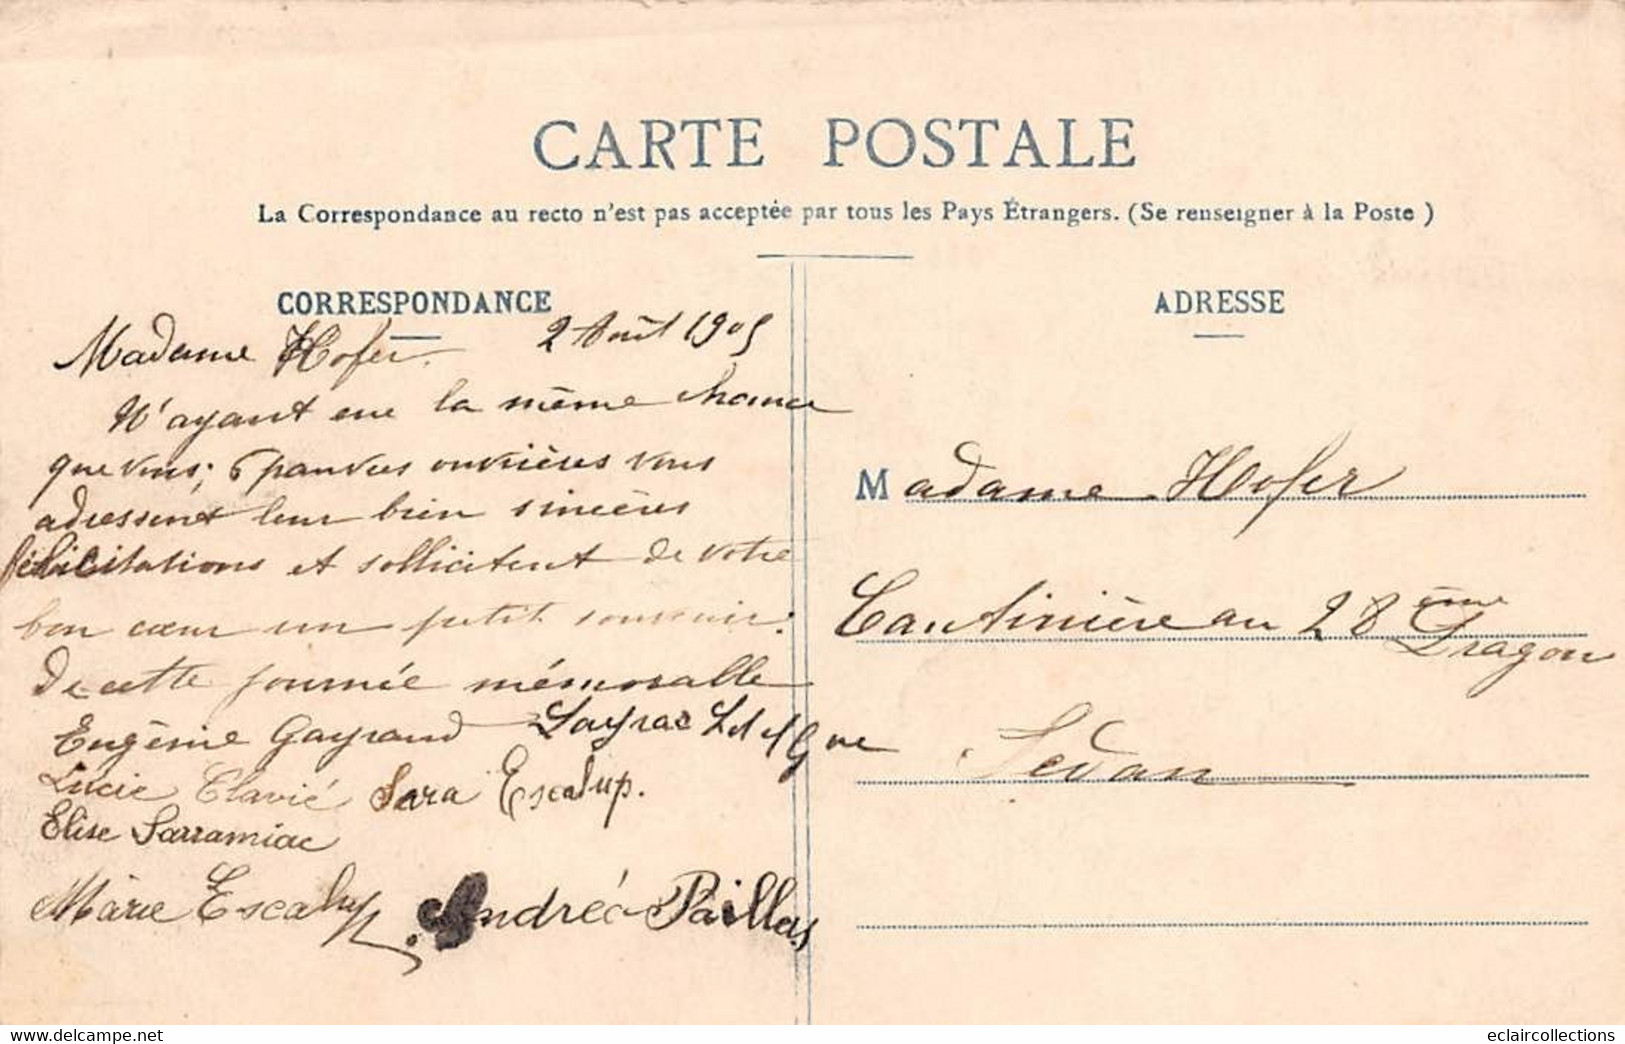 CARTE POSTALE
La Correspondance au recto n'est pas acceptée par tous les Pays Étrangers. (Se renseigner à la Poste )
CORRESPONDANCE
Madame Hofer. 2 Août 1905
N'ayant eue la même chance
que vous; 6 pauvres ouvrières vous
adressent leur bien sincères
félicitations et sollicitent de votre
bon cœur un petit souvenir.
De cette journée mémorable
Eugénie Gayraud Layrac
Lucie Clavié Sara Escalup.
Elise Sarramiac
Marie Escalup. Andréa Paillas
ADRESSE
Madame Hofer
Cantinière au 28ème Dragon
Sedan
www.delcampe.net
eclaircollections